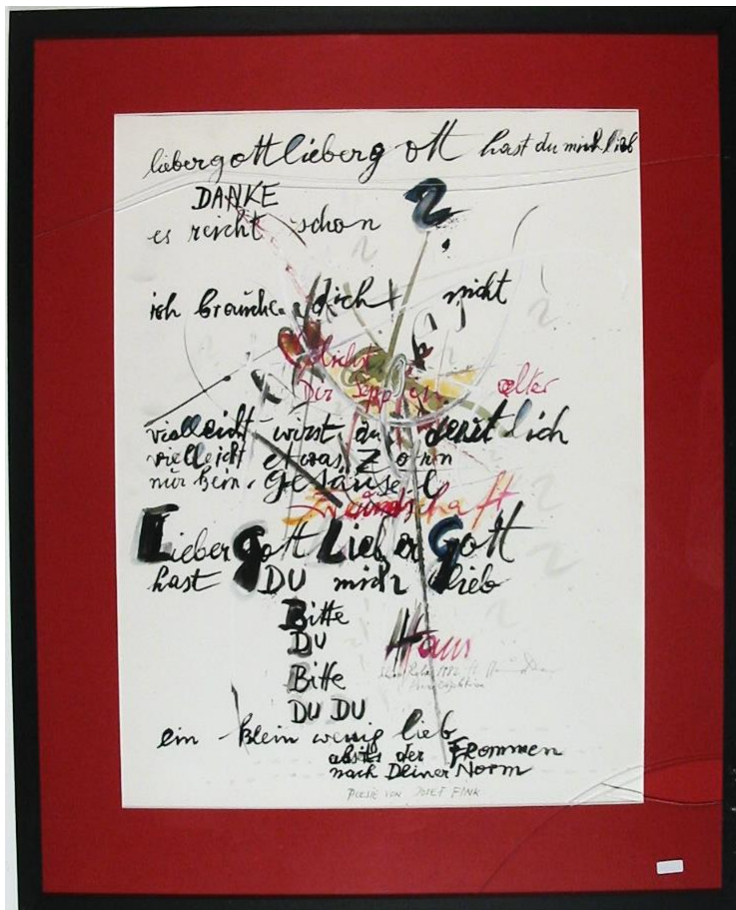 liebergottlieberg ott hast du mich lieb
DANKE
es reicht schon
2
ich brauche dich nicht
vielleicht wirst du deutlich
vielleicht etwas Zorn
nur kein Gesäusel
Freundschaft
Lieber Gott Lieber Gott
hast DU mich lieb
Bitte
DU
Bitte
DU DU
ein klein wenig lieb
abseits der Frommen
nach Deiner Norm
POESIE VON JOSEF FINK